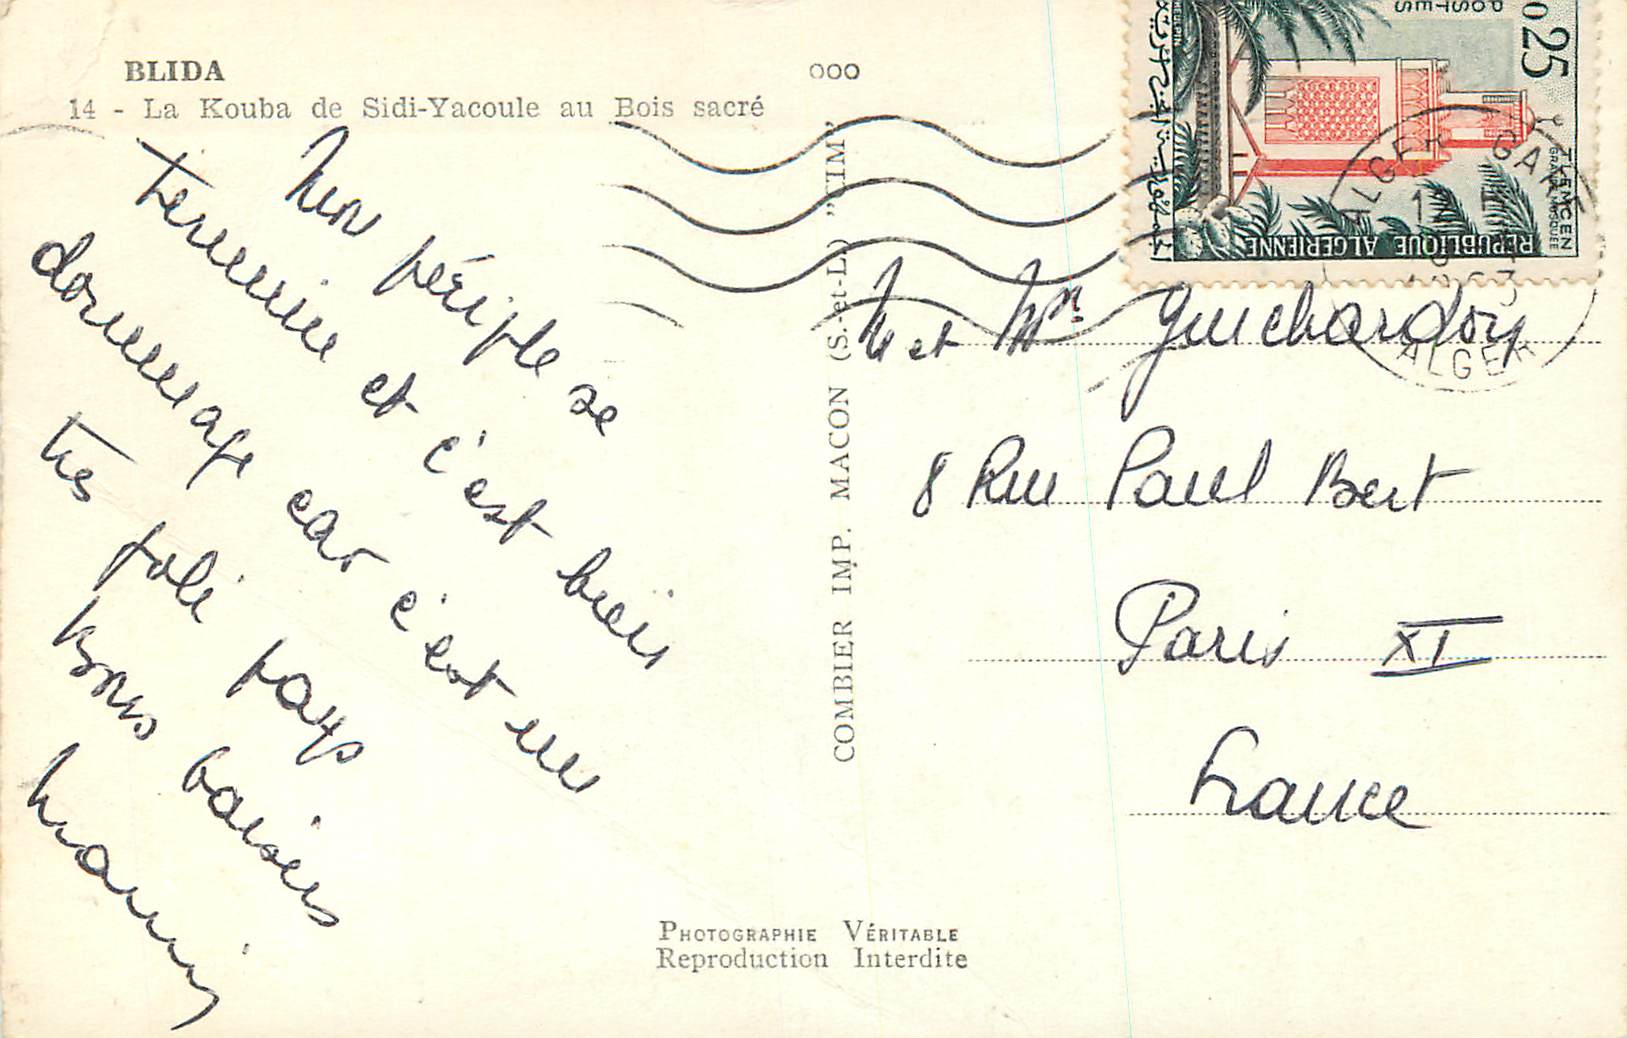 BLIDA
14 - La Kouba de Sidi-Yacoule au Bois sacré
ooo
Mon périple se
termine et c'est bien
dommage car c'est un
tres joli pays
Bons baisers
mami
COMBIER IMP. MACON (S.-et-L.) "CIM"
POSTES
0,25
TLEMCEN
GRANDE MOSQUÉE
REPUBLIQUE ALGERIENNE
ALGER GARE
ALGER
M et Mme Guichardon
8 Rue Paul Bert
Paris XI
France
PHOTOGRAPHIE VÉRITABLE
Reproduction Interdite